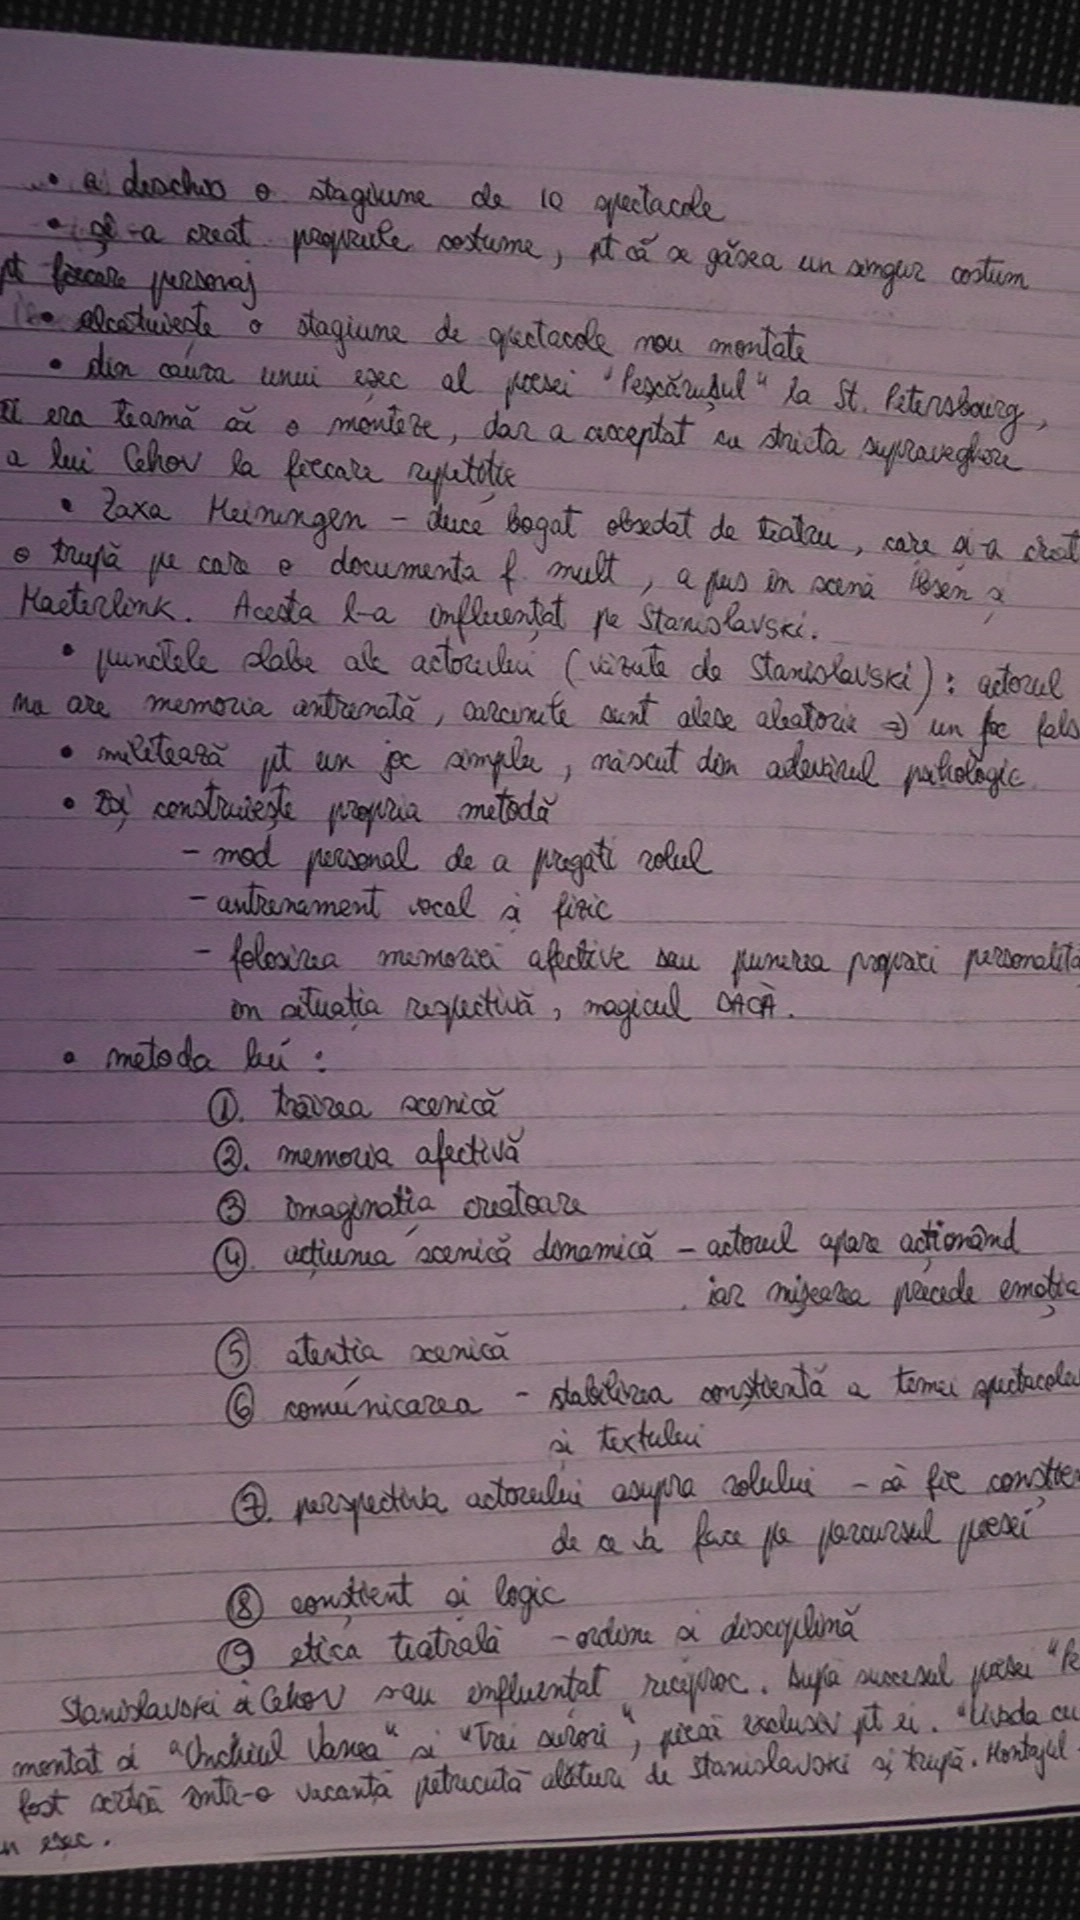 • a deschis o stagiune de 10 spectacole
• și-a creat propriile costume, pt că se găsea un singur costum
pt fiecare personaj
• alcatuiește o stagiune de spectacole nou montate
• din cauza unui eșec al piesei "Pescărușul" la St. Petersbourg,
îi era teamă să o monteze, dar a acceptat cu stricta supraveghere
a lui Cehov la fiecare repetiție
• Zaxa Meiningen - duce bogat obsedat de teatru, care și-a creat
o trupă pe care o documenta f. mult, a pus în scenă Ibsen și
Maeterlink. Acesta l-a influențat pe Stanislavski.
• punctele slabe ale actorului (văzute de Stanislavski): actorul
nu are memoria antrenată, sarcinile sunt alese aleatoriu => un joc fals
• militează pt un joc simplu, născut din adevărul psihologic.
• Își construiește propria metodă
- mod personal de a pregati rolul
- antrenament vocal și fizic
- folosirea memoriei afective sau punerea propriei personalită
în situația respectivă, magicul DACĂ.
• metoda lui:
①. trăirea scenică
②. memoria afectivă
③ imaginatia creatoare
④. acțiunea scenică dinamică - actorul apare acționând
iar mișcarea precede emoția
⑤ atentia scenică
⑥ comunicarea - stabilirea conștientă a temei spectacolu
și textului
⑦. perspectiva actorului asupra rolului - să fie conștie
de ce va face pe parcursul piesei
⑧ conștient si logic
⑨ etica teatrală - ordine si disciplină
Stanislavski și Cehov sau influentat reciproc. După succesul piesei "Pe
montat si "Unchiul Vanea" si "Trei surori", piesă exclusiv pt ei. "Livada cu
fost scrisă într-o vacanță petrecută alături de Stanislavski și trupă. Montajul
n eșec.